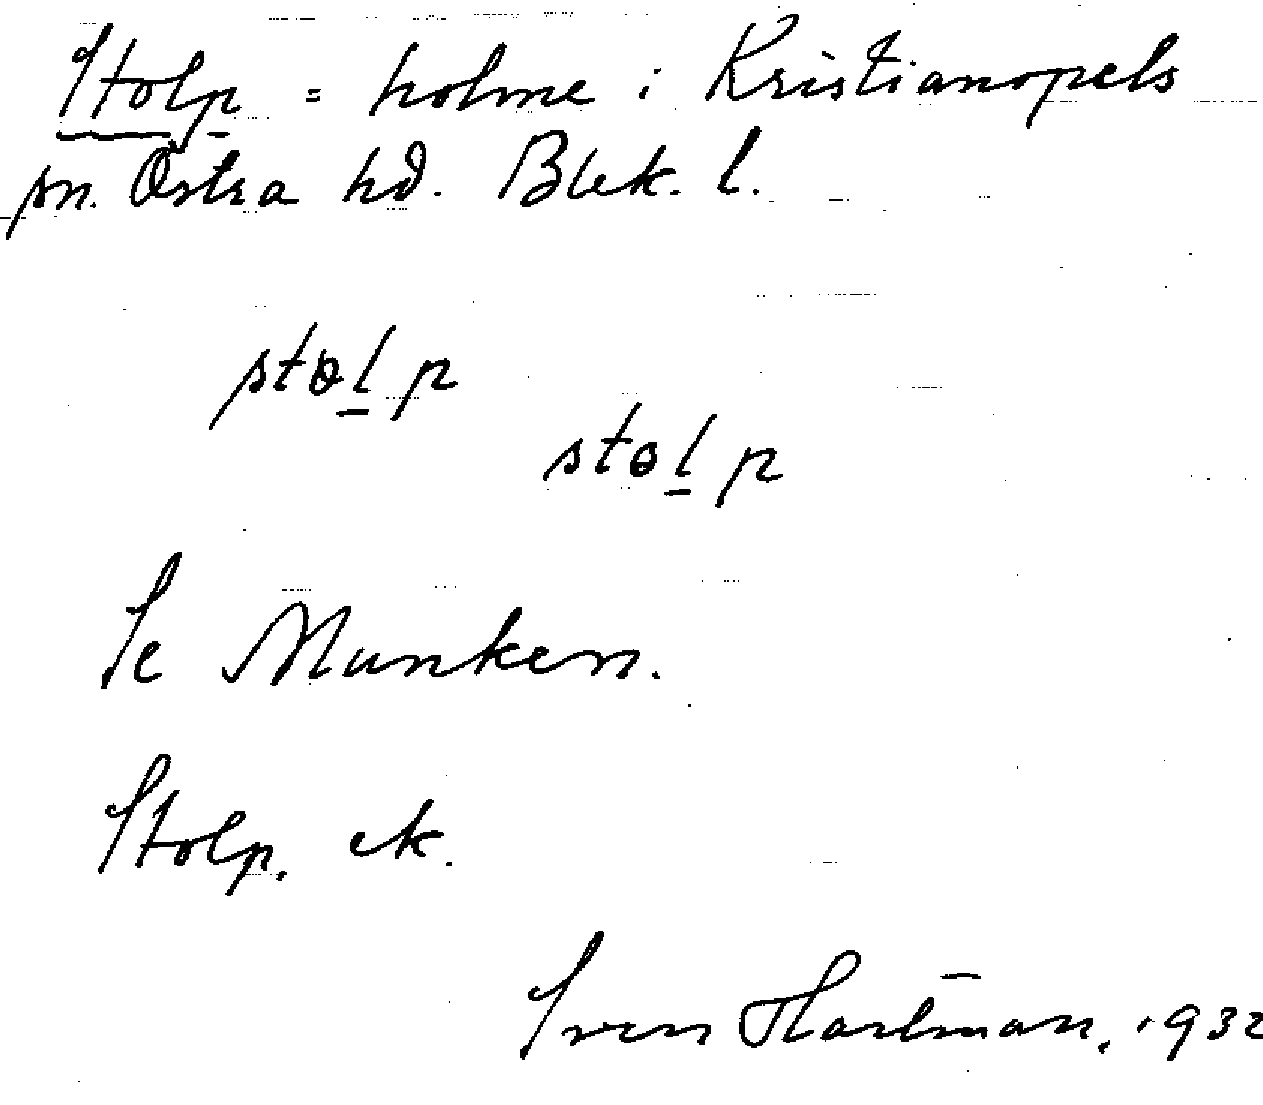 Stolp = holme i Kristianopels
sn. Östra hd. Blek. l.
stɵl̲p
stɵl̲p
Se Munken.
Stolp. ek.
Sven Hartman, 1932